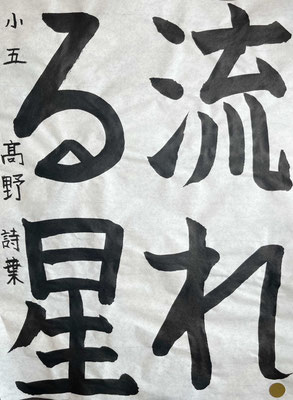 流れ
る星
小五 髙野 詩葉